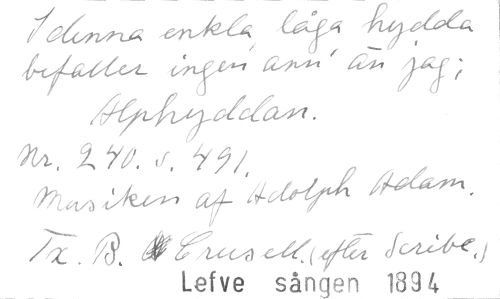 I denna enkla, låga hydda
befaller ingen ann' än jag;
Alphyddan.
Nr. 240. s. 491.
Musiken af Adolph Adam.
Tx. B. Crusell. (efter Scribe.)
Lefve sången 1894